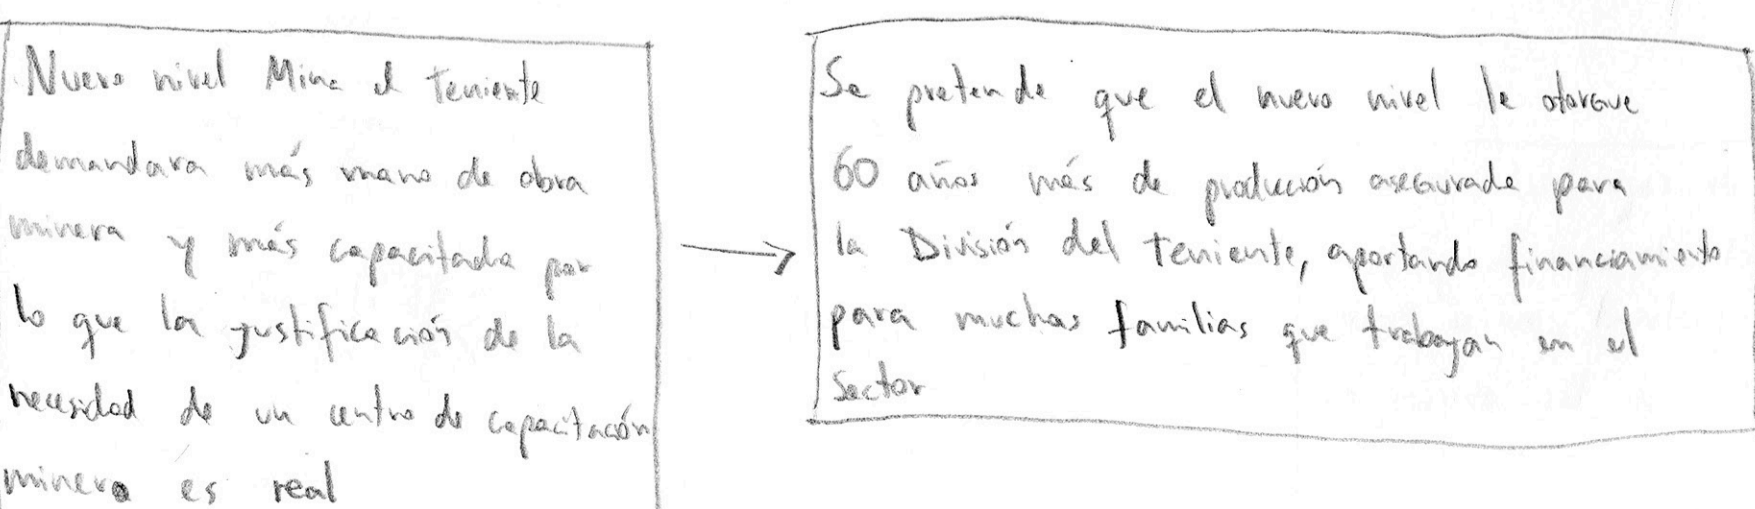 Nuevo nivel Mina el teniente
demandara más mano de obra
minera y más capacitada por
lo que la justificación de la
necesidad de un centro de capacitación
minero es real
Se pretende que el nuevo nivel le otorgue
60 años más de producción asegurada para
la División del teniente, aportando financiamiento
para muchas familias que trabajan en el
sector